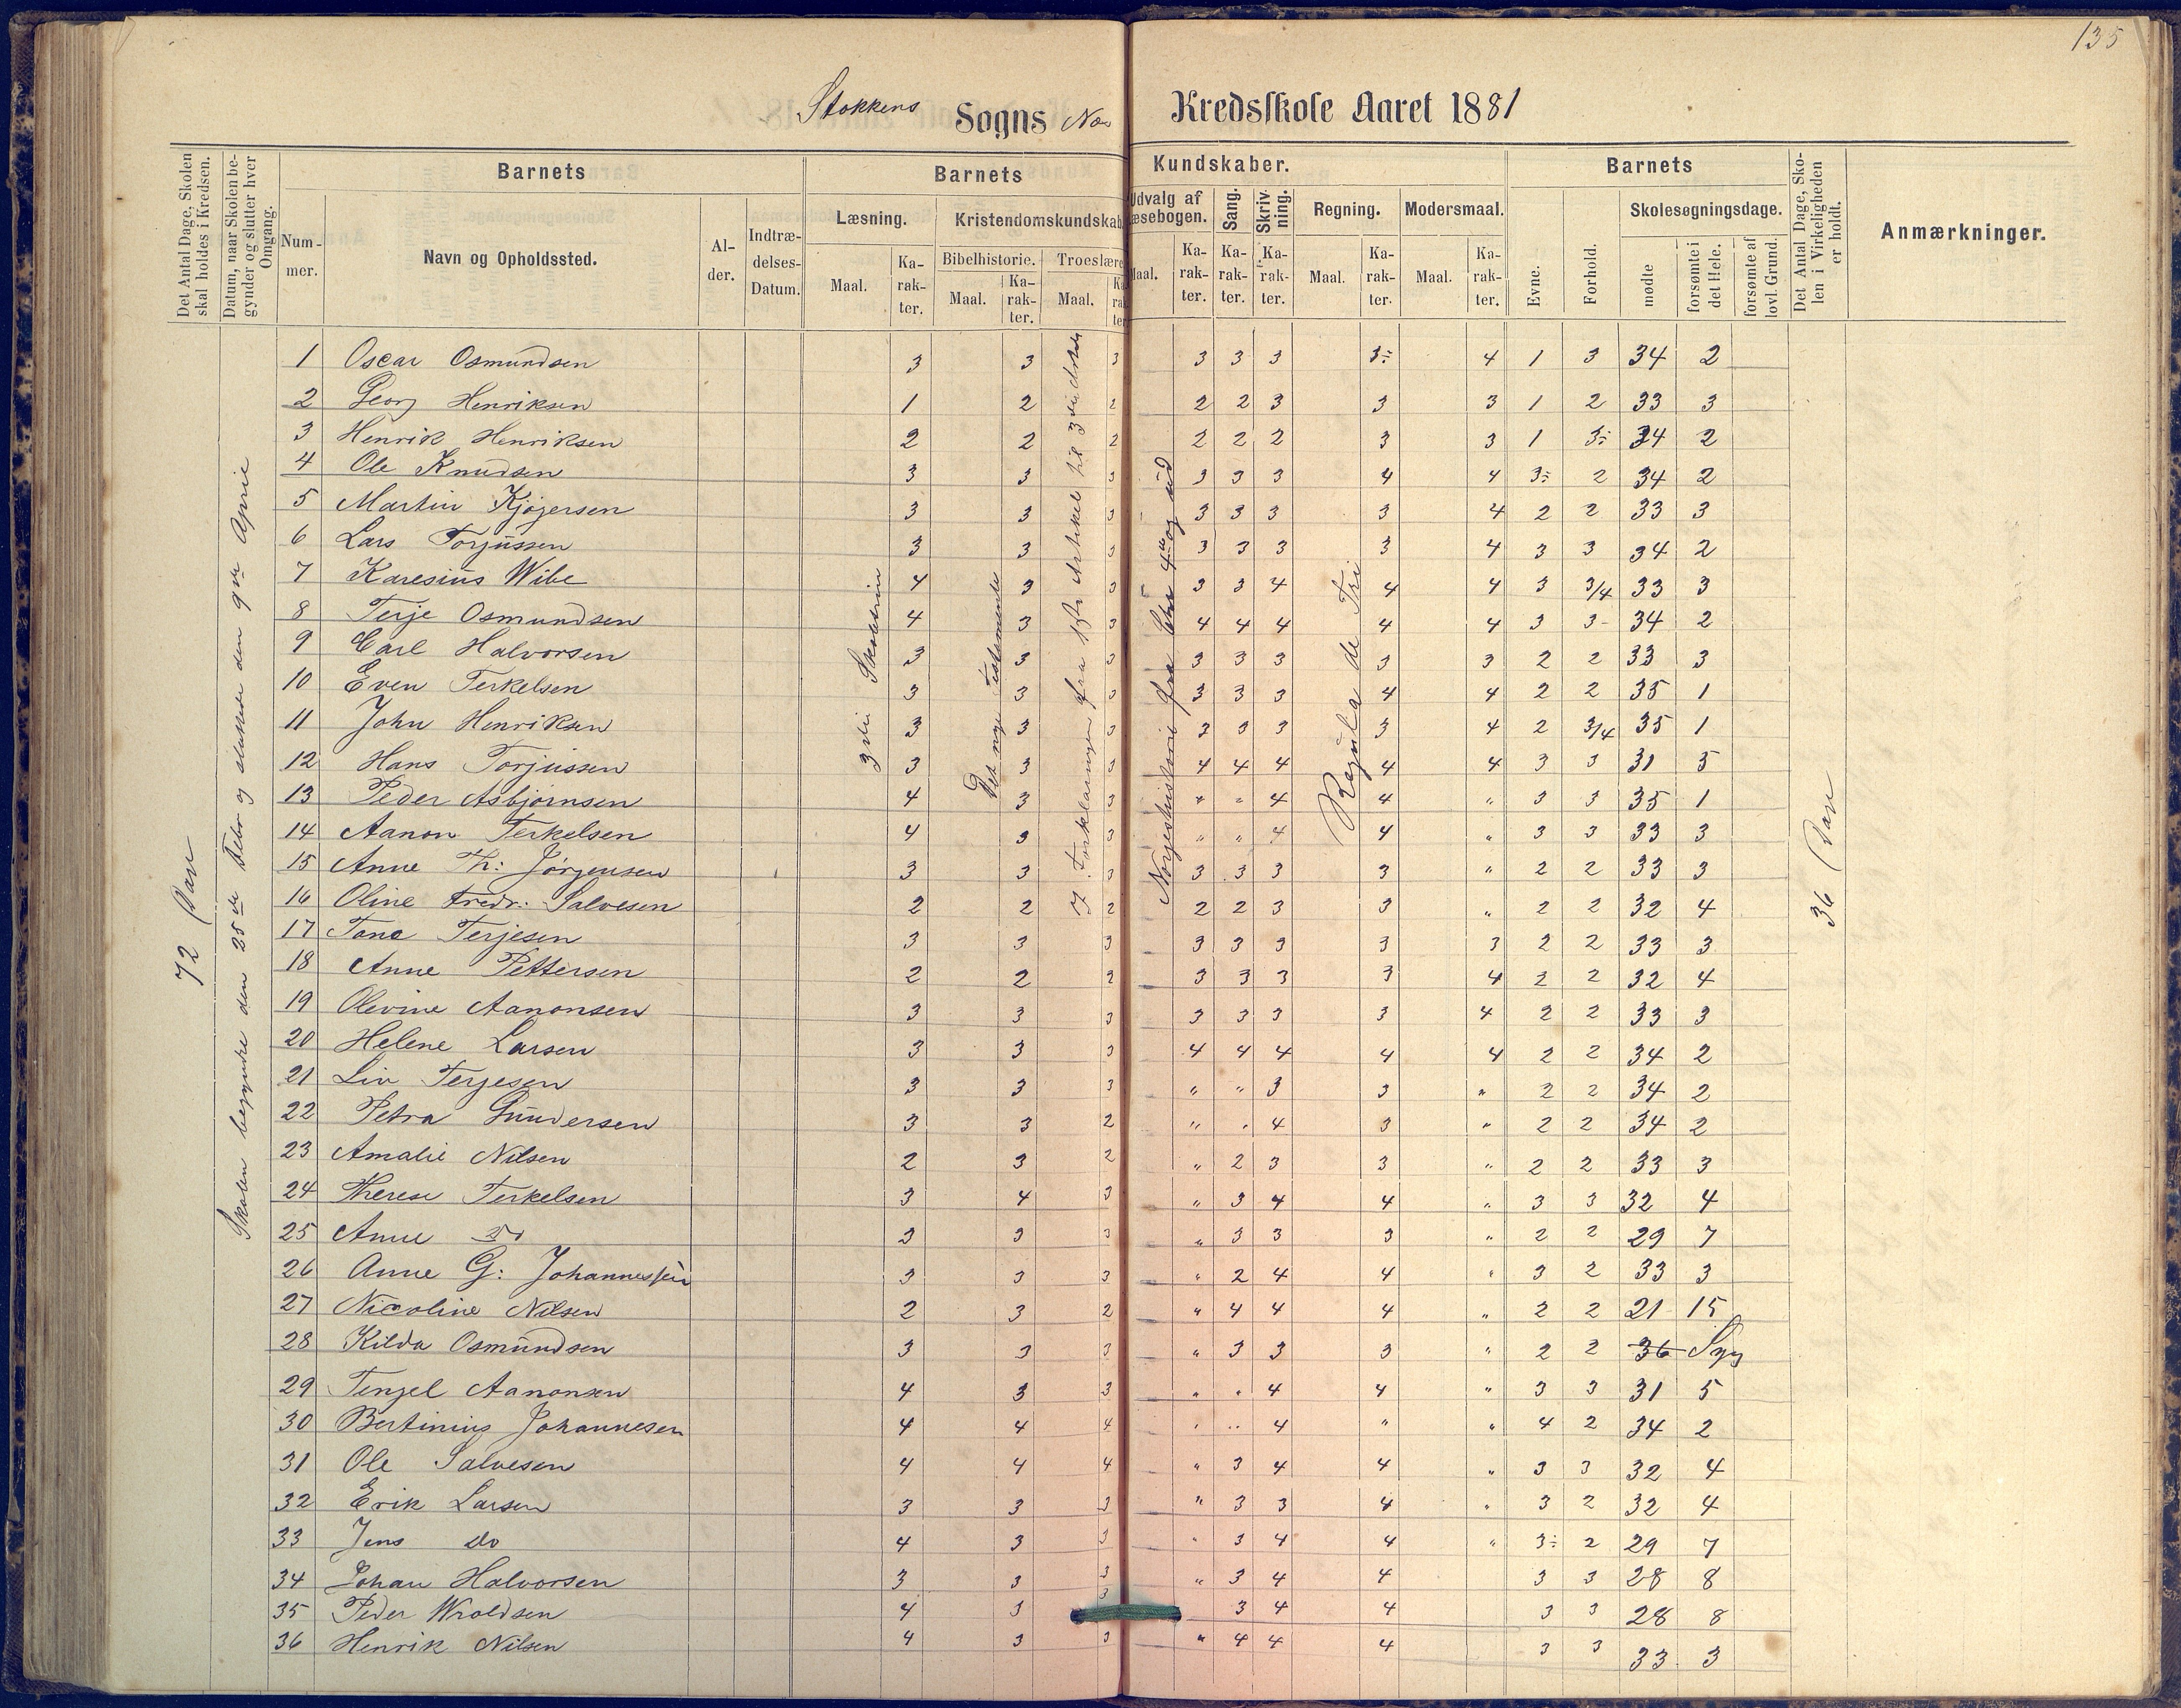 135
Stokkens Sogns No Kredsskole Aaret 1881
Det Antal Dage, Skolen skal holdes i Kredsen.
Datum, naar Skolen begynder og slutter hver Omgang.
Barnets
Nummer.
Navn og Opholdssted.
Alder.
Indtrædelses-Datum.
Barnets Kundskaber.
Læsning.
Maal. Karakter.
Kristendomskundskab
Bibelhistorie. Maal. Karakter.
Troeslære Maal. Karakter
Udvalg af Læsebogen.
Maal. Karakter.
Sang. Karakter.
Skrivning. Karakter.
Regning. Maal. Karakter.
Modersmaal. Maal. Karakter.
Barnets
Evne. Forhold.
Skolesøgningsdage.
mødte forsømte i det Hele. forsømte af lovl. Grund.
Det Antal Dage, Skolen i Virkeligheden er holdt.
Anmærkninger.
72
Skolen begyndte den 25de Febr og sluttede den 9de April
3die
Det nye Testamente
Forklaringen fra 1ste Artikel til 3die
Norgeshistorie fra
Regula de Tri
36
1 Oscar Osmundsen 3 3 3 3 3 3 3÷ 4 1 3 34 2
2 Georg Henriksen 1 2 2 2 2 3 3 3 1 2 33 3
3 Henrik Henriksen 2 2 2 2 2 2 3 3 1 3÷ 34 2
4 Ole Knudsen 3 3 3 3 3 3 4 4 3÷ 2 34 2
5 Martin Kjøgersen 3 3 3 3 3 3 3 4 2 2 33 3
6 Lars Torjussen 3 3 3 3 3 3 3 4 3 3 34 2
7 Karesius Wibe 4 3 3 3 3 4 4 4 3 3/4 33 3
8 Terje Osmundsen 4 3 3 4 4 4 4 4 3 3 34 2
9 Carl Halvorsen 3 3 3 3 3 3 3 3 2 2 33 3
10 Even Terkelsen 3 3 3 3 3 3 4 4 2 2 35 1
11 John Henriksen 3 3 3 3 3 3 3 4 2 3/4 35 1
12 Hans Torjussen 3 3 3 4 4 4 4 4 3 3 31 5
13 Peder Asbjørnsen 4 3 3 " " 4 4 " 3 3 35 1
14 Aanon Terkelsen 4 3 3 " " 4 4 " 3 3 33 3
15 Anne Th: Jørgensen 3 3 3 3 3 3 3 " 2 2 33 3
16 Oline Fredr: Salvesen 2 2 2 2 2 3 3 " 2 2 32 4
17 Tone Terjesen 3 3 3 3 3 3 3 3 2 2 33 3
18 Anne Pettersen 2 2 2 3 3 3 3 4 2 2 32 4
19 Olevine Aanonsen 3 3 3 3 3 3 3 4 2 2 33 3
20 Helene Larsen 3 3 3 4 4 4 4 4 2 2 34 2
21 Liv Terjesen 3 3 3 " " 3 3 " 2 2 34 2
22 Petra Gundersen 3 3 2 " " 4 3 " 2 2 34 2
23 Amalie Nilsen 2 3 2 " 2 3 3 " 2 2 33 3
24 Therese Terkelsen 3 4 3 " 3 4 4 " 3 3 32 4
25 Anne Do 3 3 3 " 3 3 3 " 2 2 29 7
26 Anne G: Johannessen 3 3 3 " 2 4 4 " 3 2 33 3
27 Nicoline Nilsen 2 3 2 " 4 4 4 " 2 2 21 15
28 Kilda Osmundsen 3 3 3 " 3 3 3 " 2 2 36 Syg
29 Tengel Aanonsen 4 3 3 " " 4 4 " 3 3 31 5
30 Bertinius Johannesen 4 4 4 " " 4 " " 4 2 34 2
31 Ole Salvesen 4 4 4 " 3 4 4 " 3 3 32 4
32 Erik Larsen 3 3 3 " 3 3 4 " 3 2 32 4
33 Jens do 4 3 3 " 3 4 4 " 3÷ 2 29 7
34 Johan Halvorsen 3 3 3 " 3 4 4 3 3 28 8
35 Peder Wroldsen 4 3 3 3 4 4 3 3 28 8
36 Henrik Nilsen 4 3 3 " 4 4 4 3 3 33 3